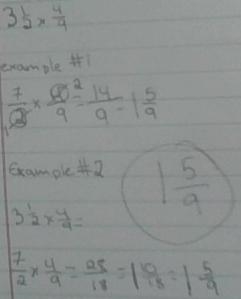 3 1/2 × 4/9
example #1
7/2 × 4/9 2 = 14/9 = 1 5/9
Example #2
1 5/9
3 1/2 × 4/9 =
7/2 × 4/9 = 28/18 = 1 10/18 = 1 5/9